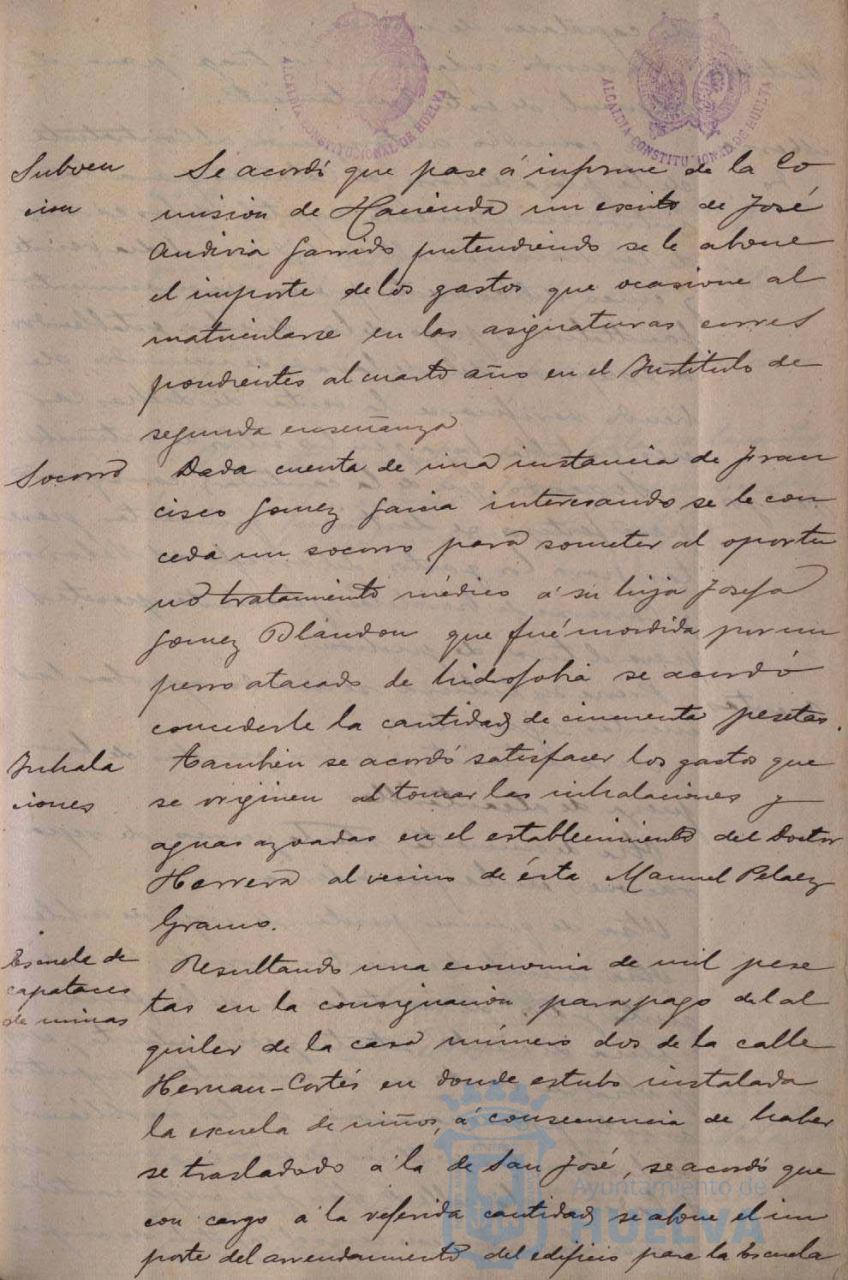 ALCALDIA CONSTITUCIONAL DE HUELVA
ALCALDIA CONSTITUCIONAL DE HUELVA
Subven
cion
Se acordó que pase á informe de la Co
mision de Hacienda un escrito de José
Andivia Garrido pretendiendo se le abone
el importe de los gastos que ocasione al
matricularse en las asignaturas corres
pondientes al cuarto año en el Instituto de
segunda enseñanza
Socorro
Dada cuenta de una instancia de Fran
cisco Gomez Garcia interesando se le con
ceda un socorro para someter al oportu
no tratamiento médico á su hija Josefa
Gomez Blandon que fué mordida por un
perro atacado de hidrofobia se acordó
concederle la cantidad de cincuenta pesetas.
Inhala
ciones
Tambien se acordó satisfacer los gastos que
se originen al tomar las inhalaciones y
aguas azoadas en el establecimiento del Doctor
Herrera al vecino de ésta Manuel Pelaez
Gramo.
Escuela de
capataces
de minas
Resultando una economia de mil pese
tas en la consignacion para pago del al
quiler de la casa número dos de la calle
Hernan-Cortés en donde estubo instalada
la escuela de niños, á consecuencia de haber
se trasladado á la de San José, se acordó que
con cargo á la referida cantidad se abone el im
porte del arrendamiento del edificio para la Escuela
Ayuntamiento de
HUELVA